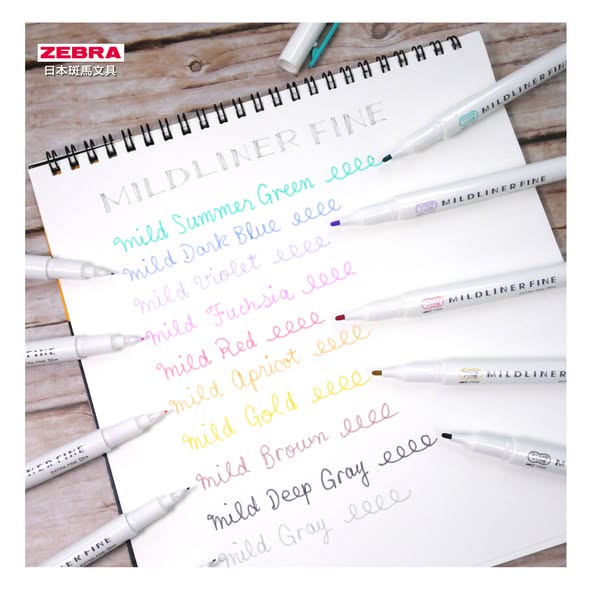 ZEBRA
日本斑馬文具
MILDLINER FINE
mild Summer Green
mild Dark Blue
mild Violet
mild Fuchsia
mild Red
mild Apricot
mild Gold
mild Brown
mild Deep Gray
mild Gray
MILDLINER FINE
MILDLINER FINE
MILDLINER FINE
MILDLINER FINE
MILDLI
FINE
NER FINE
LINER FINE